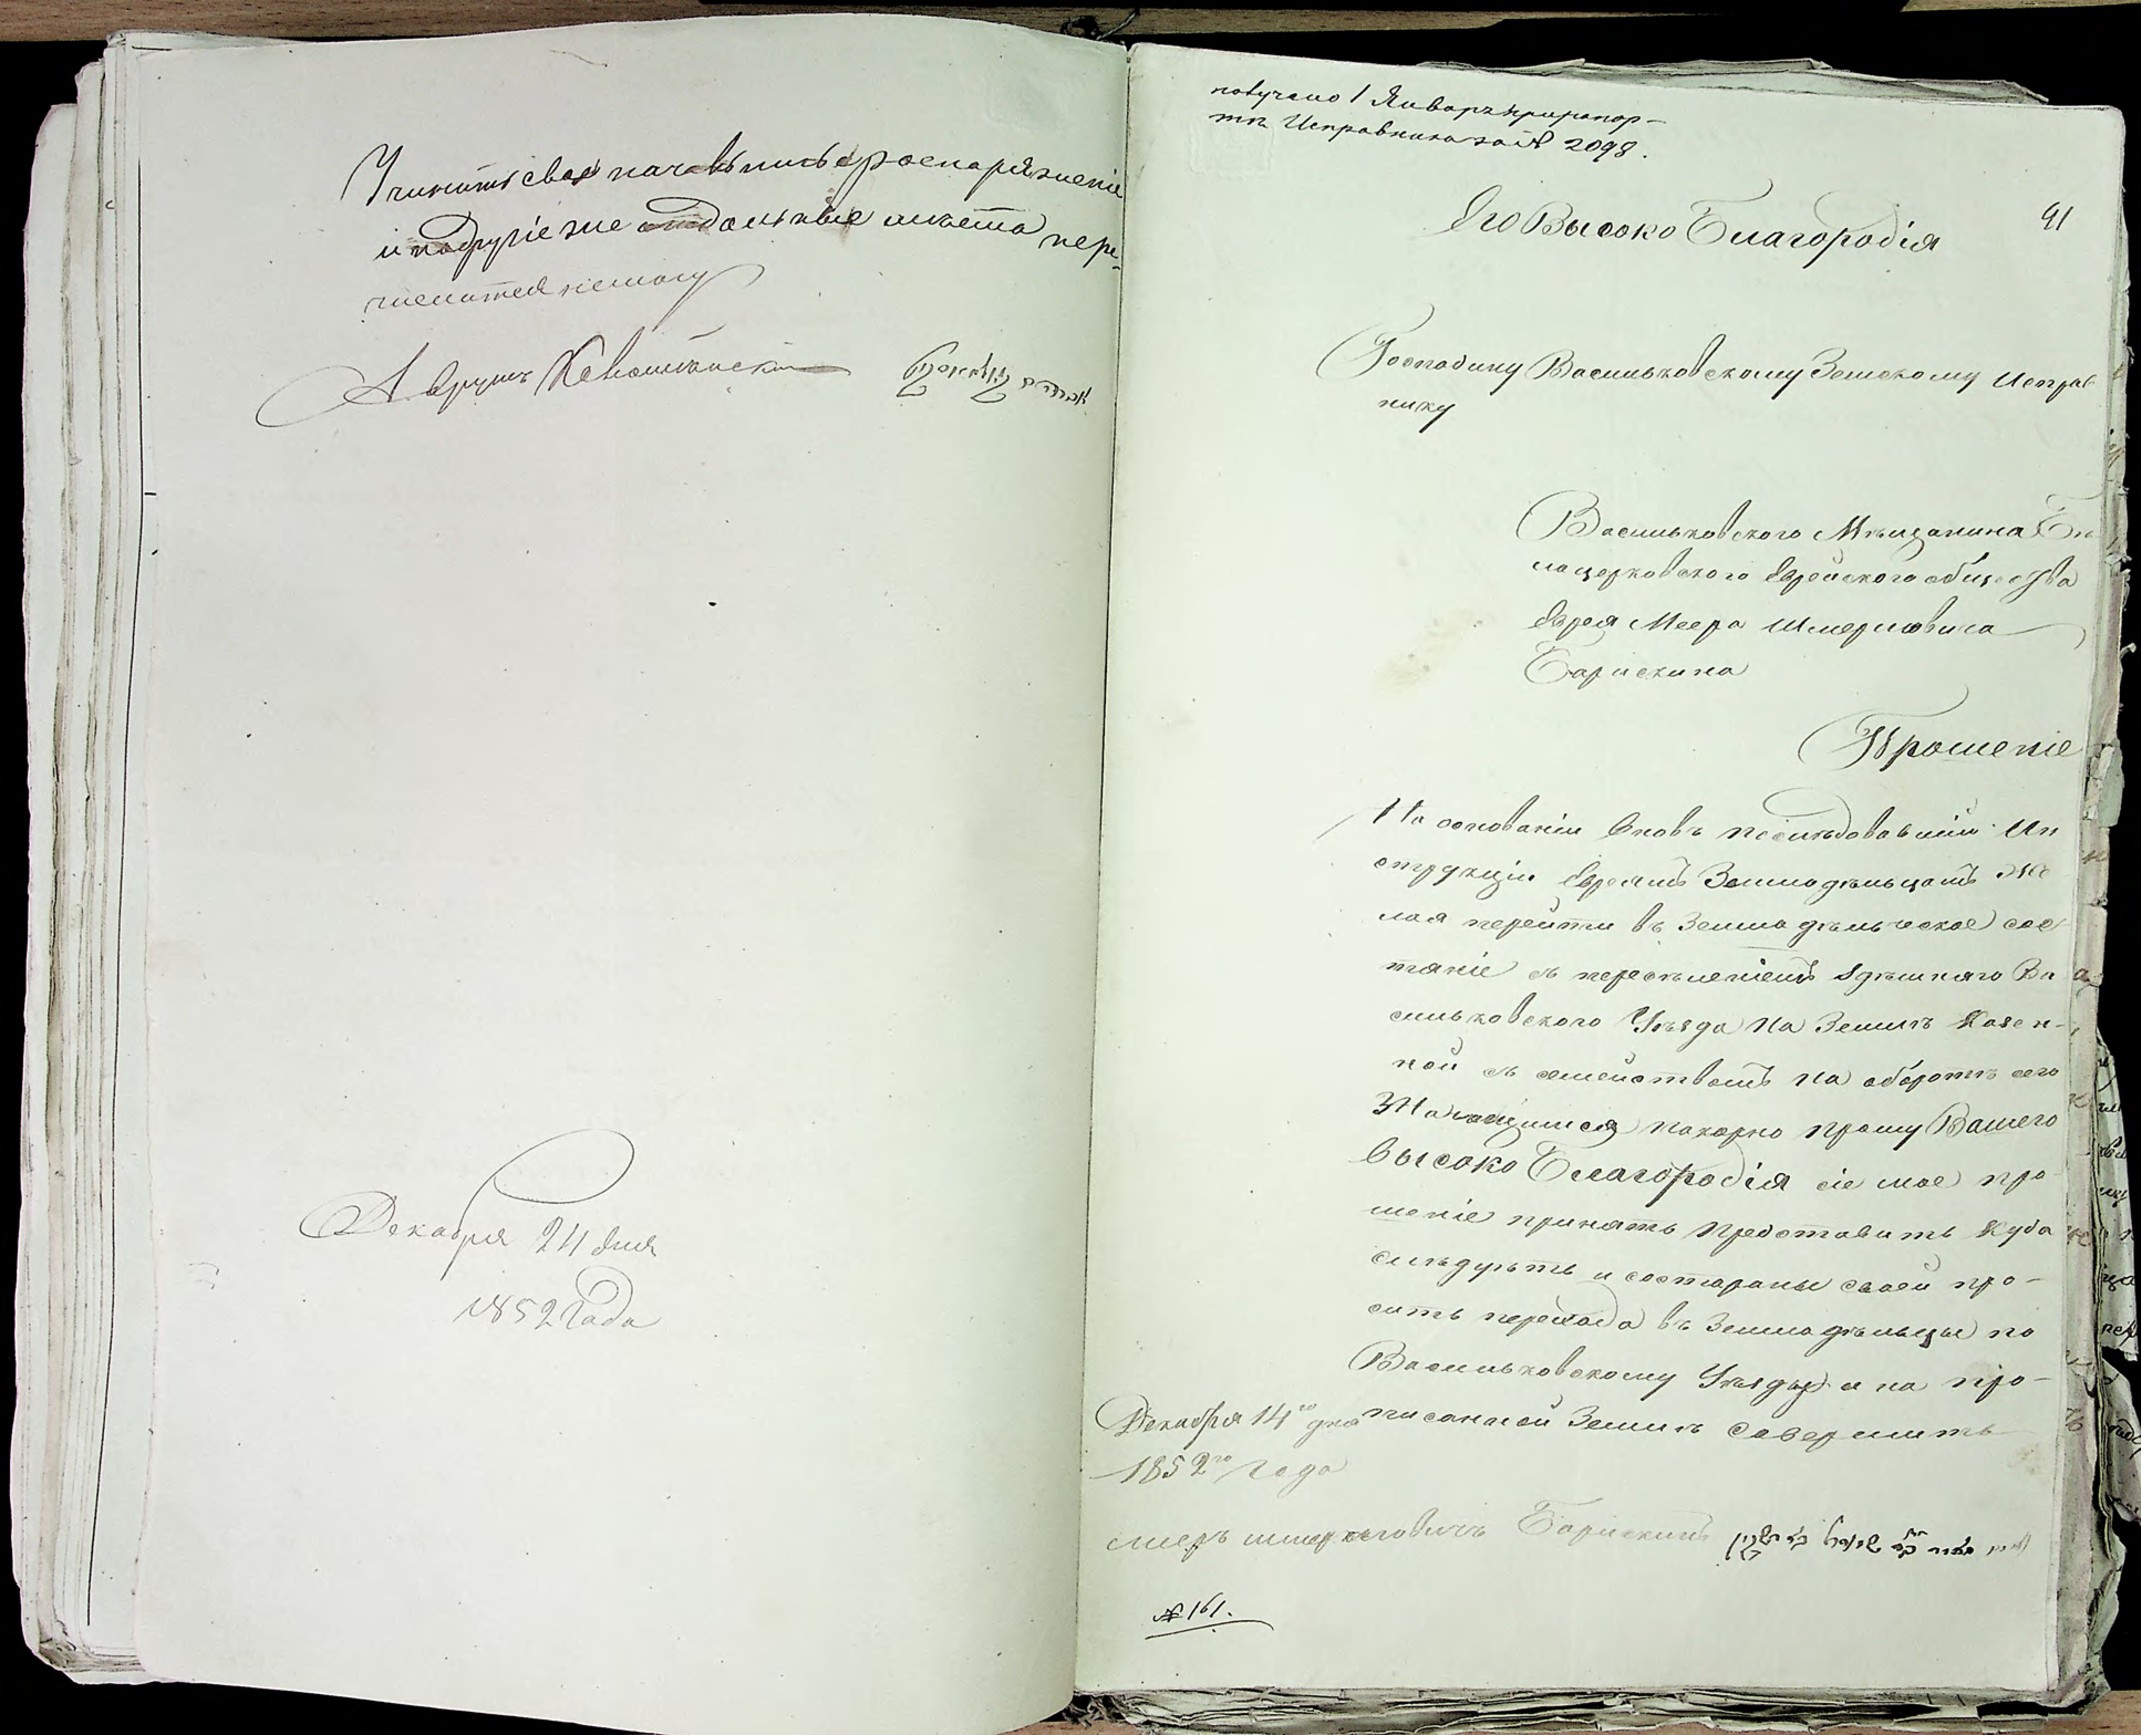 Учинить свое начальничье роспоряжение
и надругіе же отдольные места пере-
числитея немогу
Аврумъ
Декабря 24 дня
1852 Года
получено 1 Января при рапор-
тѣ Исправника за № 2098.
91
Его Высоко Благородія
Господину Васильковскому Земскому Исправ
нику
Васильковского Мѣщанина Бѣ
лоцерковского Еврейского общества
Еврея Меера Шмерковича
Барискина
Прошеніе
На основаніи вновь последовавшій Ин
струкціи Евреямъ Земледѣльцамъ Же
лая перейти въ Земледѣльческое сос
тяніе съ переселеніемъ здѣшняго Ва
сильковского Уѣзда На Землѣ Казен-
ной съ семействомъ на оборотѣ сего
Значущимися покорно прошу Вашего
Высоко Благородія сіе мое про
шеніе принять представить куда
слѣдуетъ и состараны своей про-
сить перехода въ Земледѣльцы по
Васильковскому Уѣзду а на про-
писанной Землѣ Совершить
Декабря 14го дня
1852го Года
меръ шмерковичъ Барискинъ
№ 161.